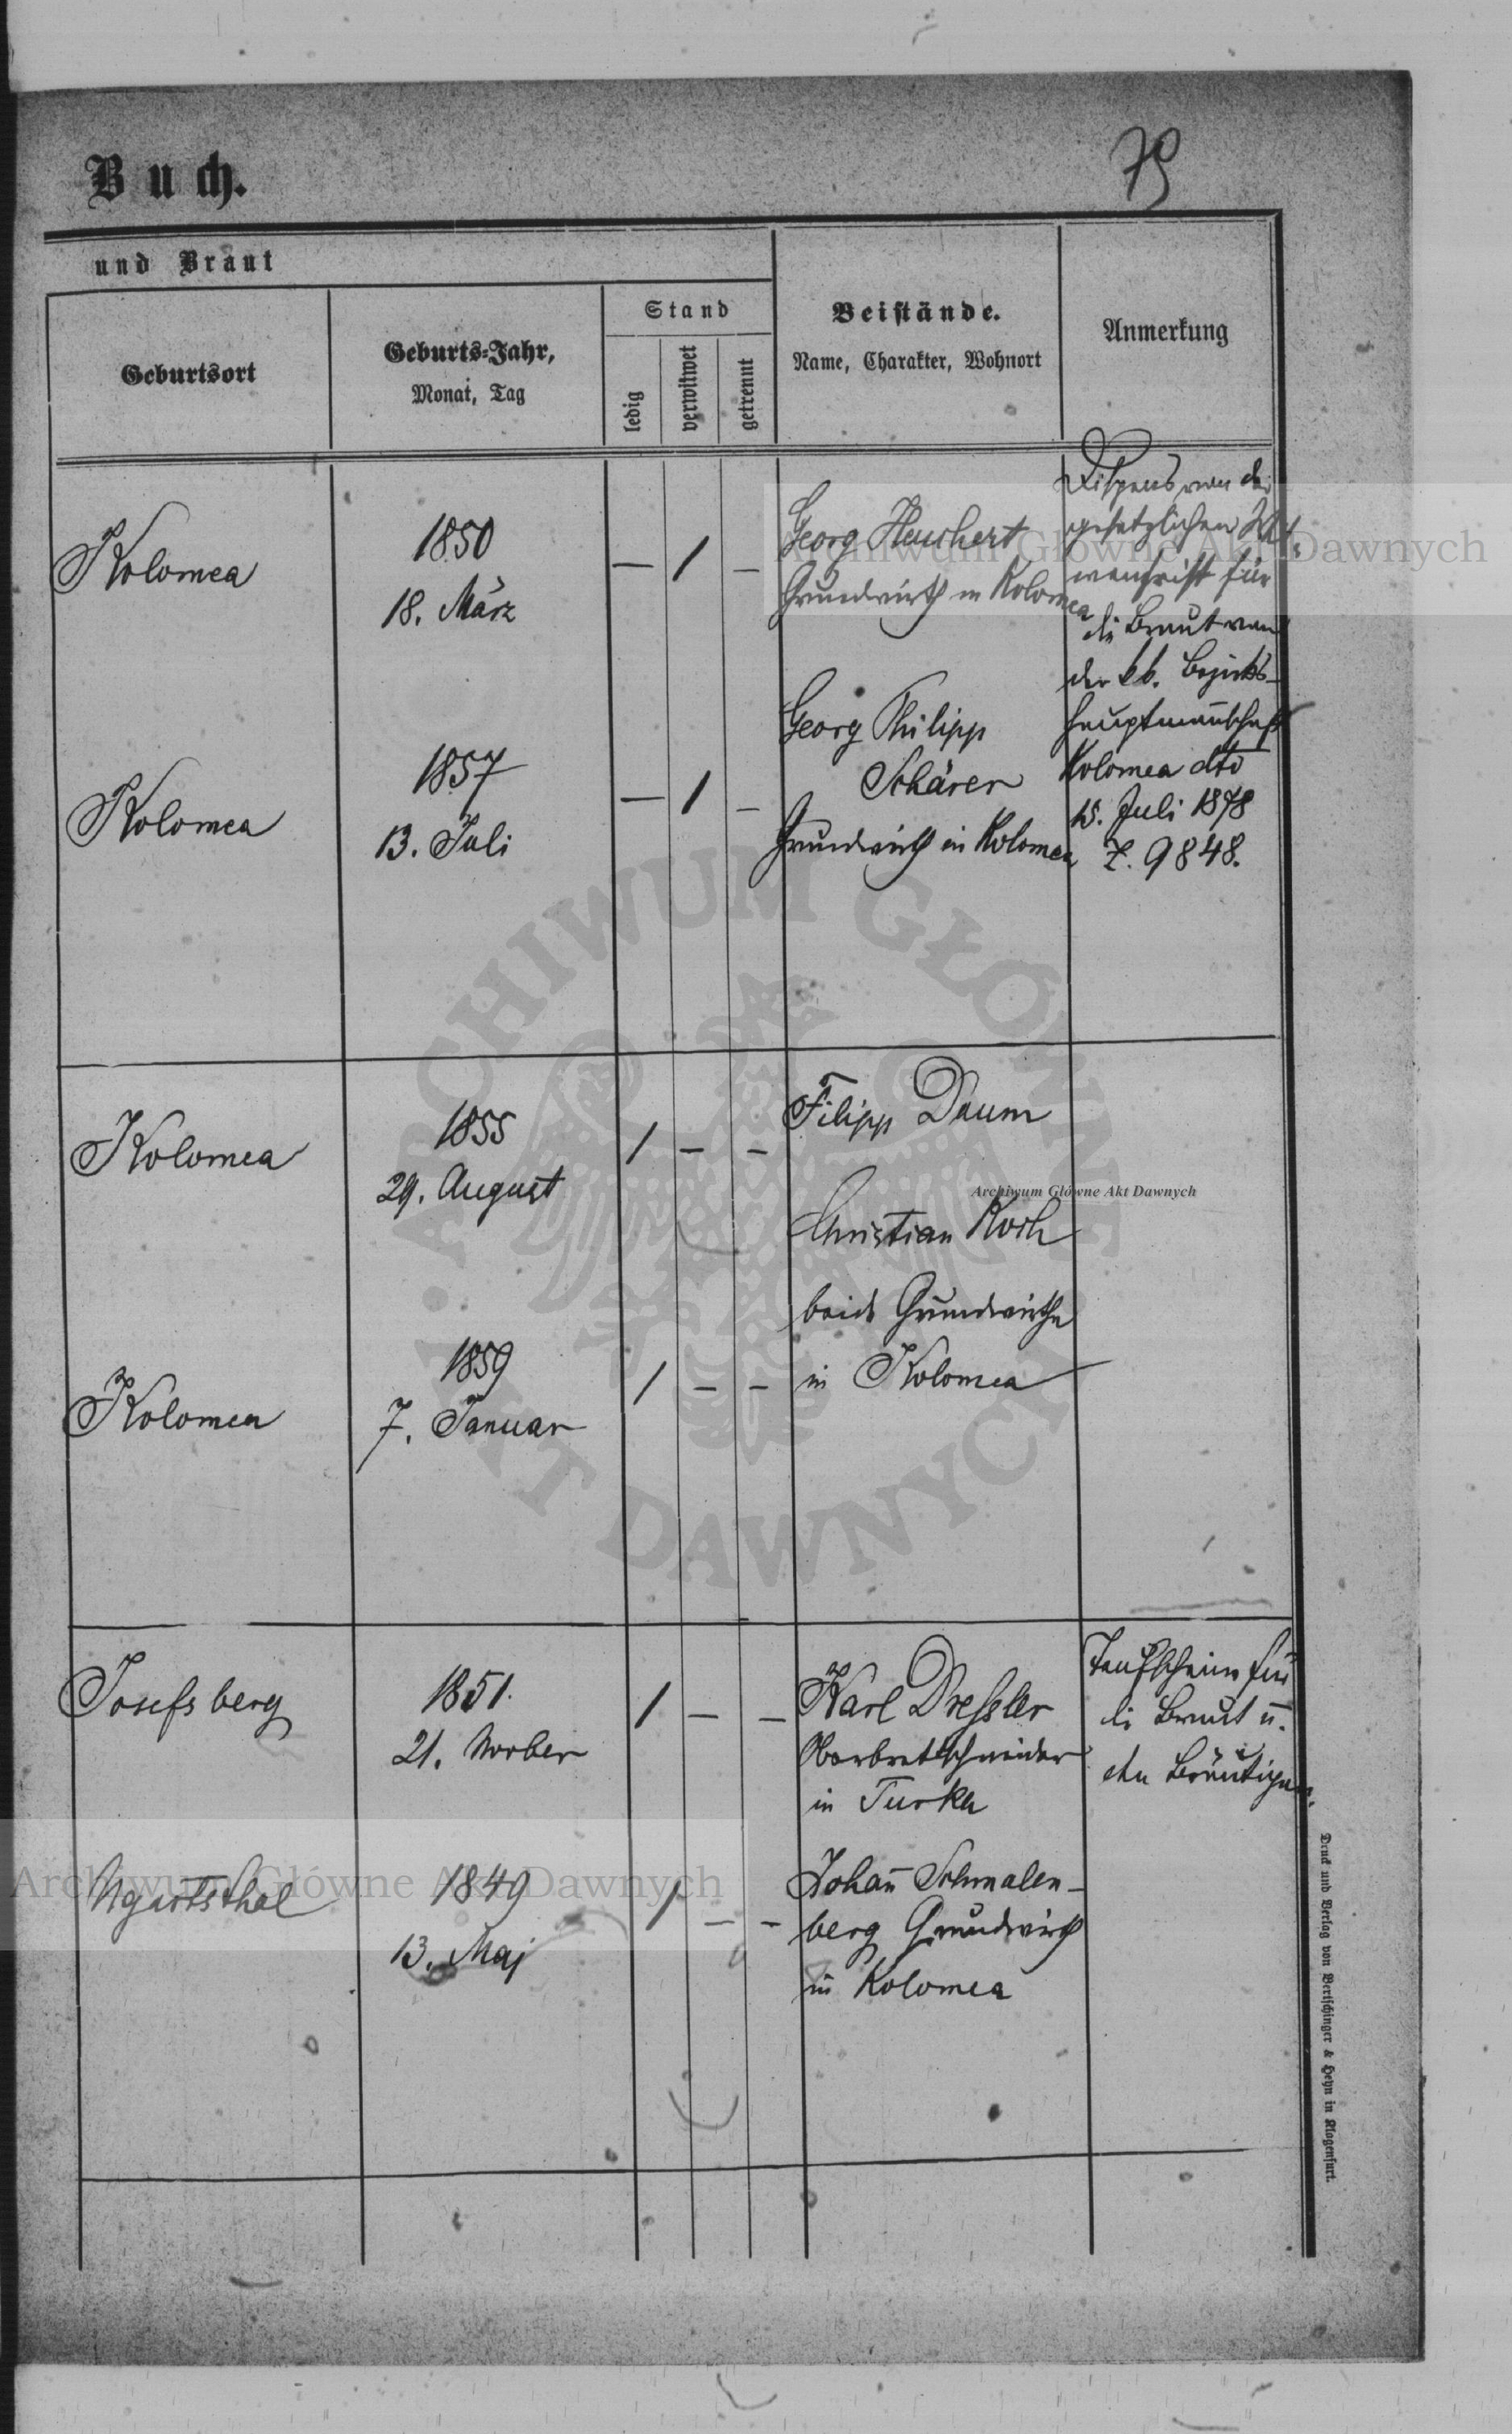 Buch.
79
und Braut
Geburtsort
Geburts-Jahr,
Monat, Tag
Stand
ledig
verwitwet
getrennt
Beistände.
Name, Charakter, Wohnort
Anmerkung
Kolomea
1850
18. März
— / —
Georg Heuchert
Grundwirth in Kolomea
Dispens von der
gesetzlichen Wit-
wenfrist für
die Braut von
der kk. Bezirks-
hauptmannschaft
Kolomea dto
15. Juli 1878
Z. 9848.
Kolomea
1857
13. Juli
— / —
Georg Philipp
Schärer
Grundwirth in Kolomea
Kolomea
1855
29. August
/ — —
Filipp Daum
Christian Koch
beide Grundwirthe
in Kolomea
Kolomea
1859
7. Januar
/ — —
Josefsberg
1851.
21. Novber
/ — —
Karl Dressler
Oberbrettschneider
in Turka
Taufschein für
die Braut u.
den Bräutigam.
Ugartsthal
1849
13. Maj
/ — —
Johan̄ Schmalen-
berg Grundwirth
in Kolomea
Druck und Verlag von Bertschinger & Heyn in Klagenfurt.
Archiwum Główne Akt Dawnych
Archiwum Główne Akt Dawnych
Archiwum Główne Akt Dawnych
ARCHIWUM GŁÓWNE AKT DAWNYCH